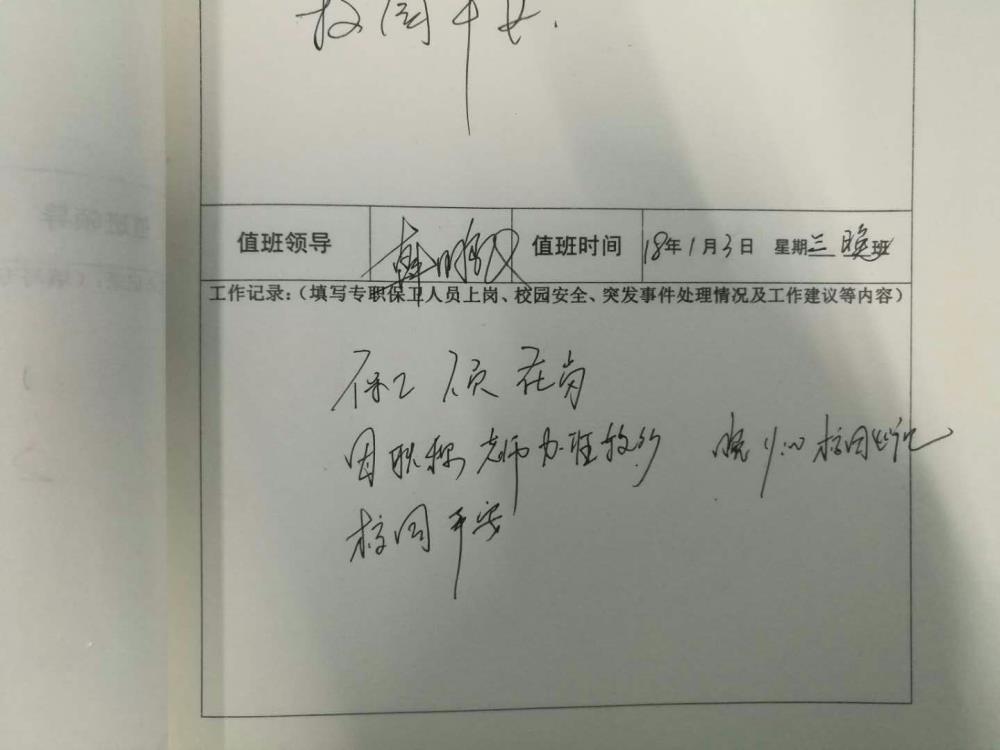 校园平安.
值班领导 值班时间 18年1月3日 星期三 晚班
工作记录：（填写专职保卫人员上岗、校园安全、突发事件处理情况及工作建议等内容）
在岗
因职称 老师办班较多 晚9:00校园
校园平安